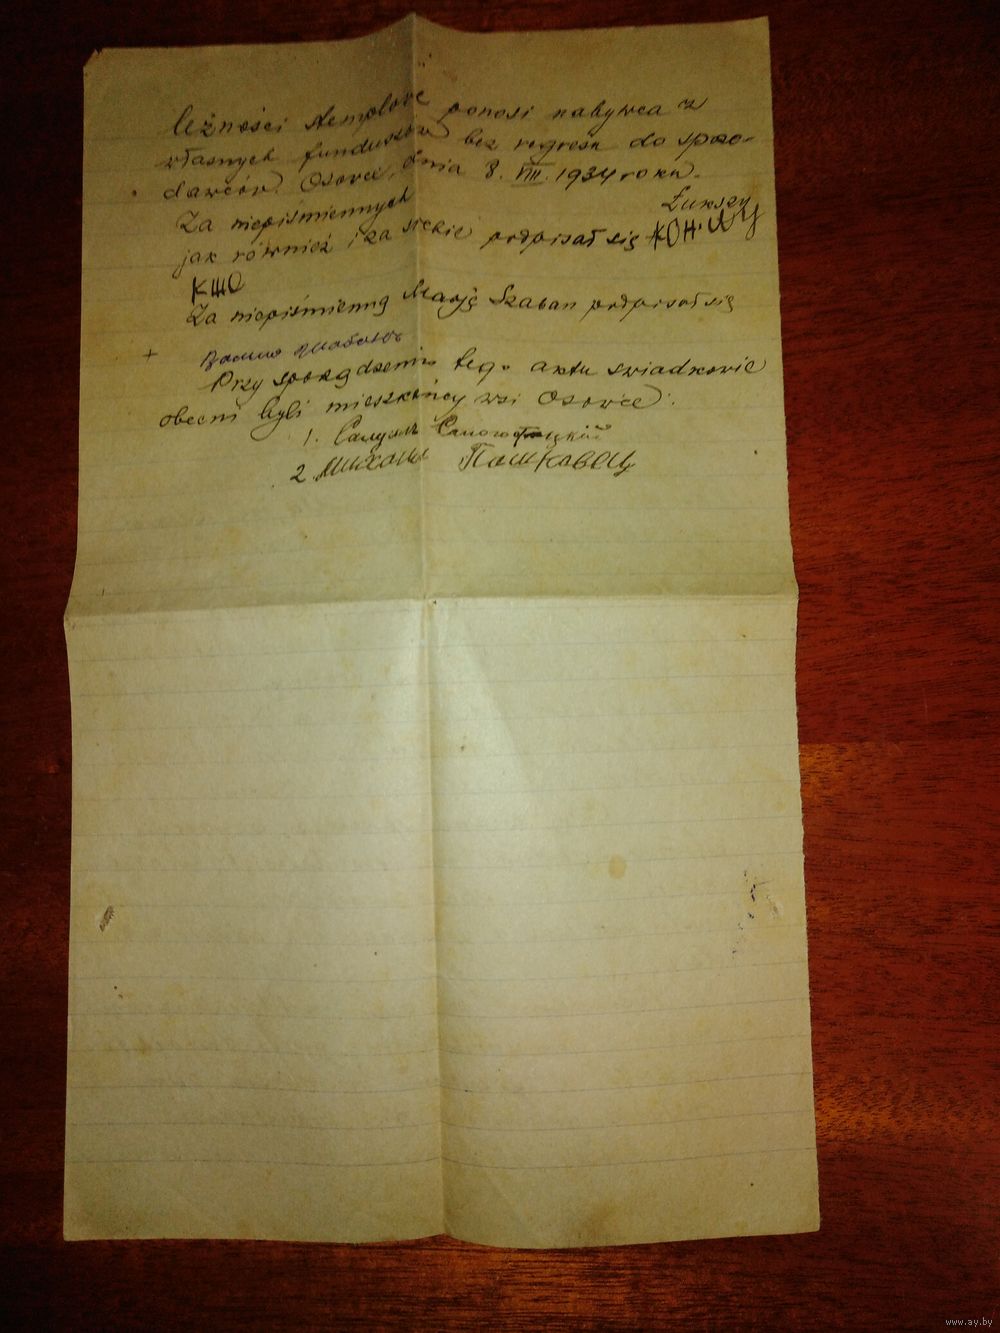 leżności stemplowe ponosi nabywca z
własnych funduszów bez regresu do sprze-
dawców. Osowce, dnia 8. VIII. 1934 roku.
Za niepiśmiennych
Łukszy
jak również i za siebie podpisał się
Za niepiśmienną Marję Szaban podpisał się
+
Przy sporządzeniu tego aktu swiadkowie
obecni byli mieszkańcy wsi Osowce:
1. Самуил
2. Михаил Пашковец
www.ay.by